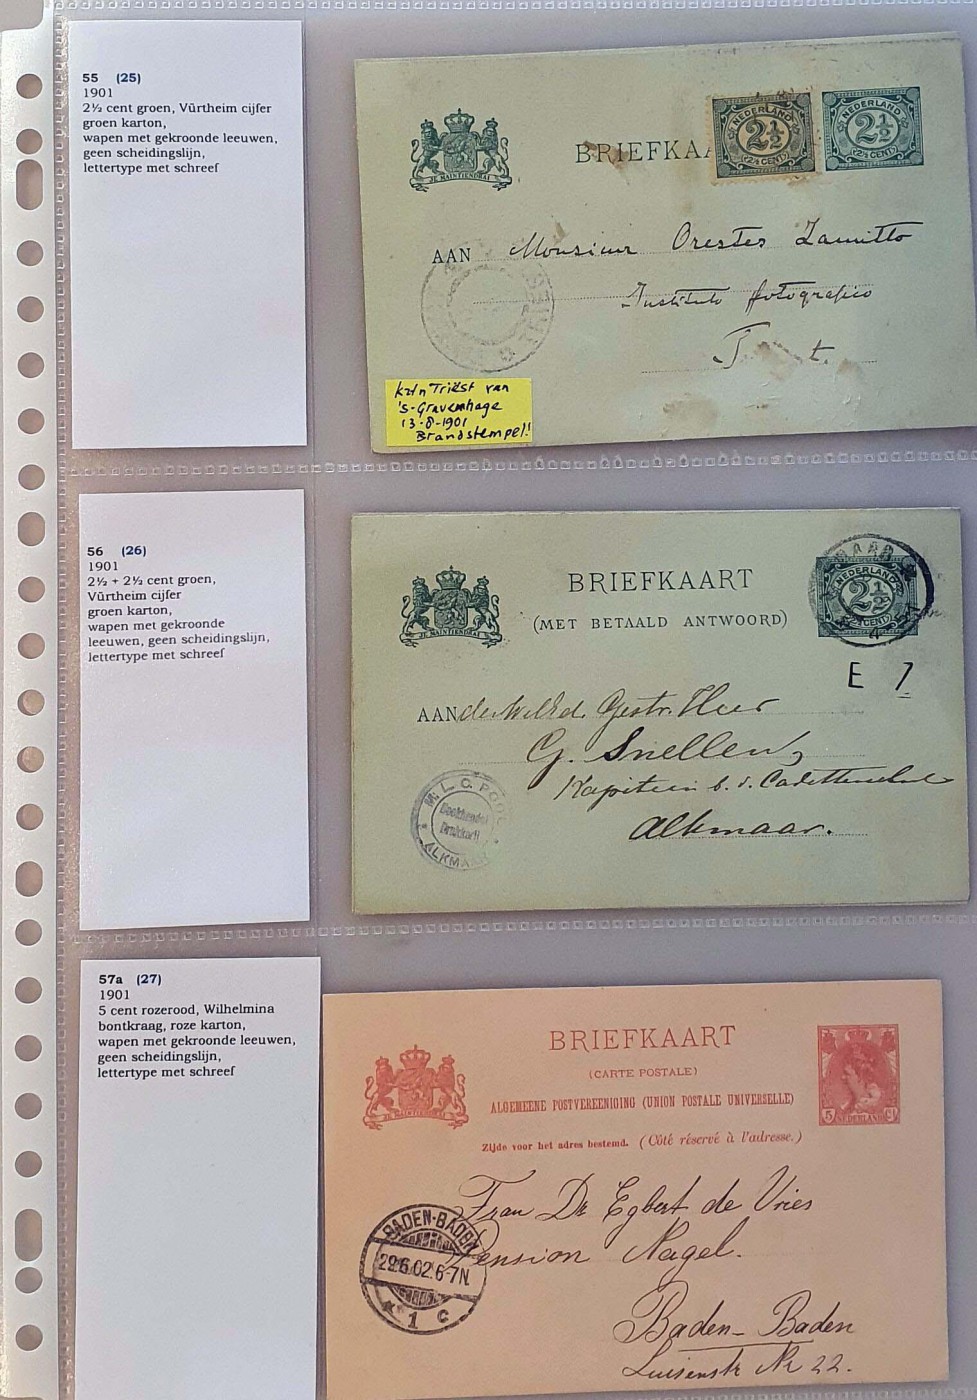 55 (25)
1901
2½ cent groen, Vûrtheim cijfer
groen karton,
wapen met gekroonde leeuwen,
geen scheidingslijn,
lettertype met schreef
NEDERLAND
2½
(2½ CENT)
NEDERLAND
2½
(2½ CENT)
JE MAINTIENDRAI
BRIEFKA
AAN Monsieur Orestes Zamitto
Instituto fotografico
kaart Triëst van
's-Gravenhage
13-8-1901
Brandstempel!
56 (26)
1901
2½ + 2½ cent groen,
Vûrtheim cijfer
groen karton,
wapen met gekroonde
leeuwen, geen scheidingslijn,
lettertype met schreef
BRIEFKAART
(MET BETAALD ANTWOORD)
NEDERLAND
2½
(2½ CENT)
JE MAINTIENDRAI
E 7
AAN de Heer
G. Snellen,
Kapitein b. d. Cadettenschool
Alkmaar.
M. L. C. POOL
Boekhandel
Drukkerij
ALKMAAR
57a (27)
1901
5 cent rozerood, Wilhelmina
bontkraag, roze karton,
wapen met gekroonde leeuwen,
geen scheidingslijn,
lettertype met schreef
BRIEFKAART
(CARTE POSTALE)
ALGEMEENE POSTVEREENIGING (UNION POSTALE UNIVERSELLE)
Zijde voor het adres bestemd. (Côté réservé à l'adresse.)
JE MAINTIENDRAI
5 NEDERLAND Ct
Frau Dr Egbert de Vries
Pension Nagel.
Baden-Baden
Luisenstr Nr 22.
BADEN-BADEN
29.6.02.6-7N.
* 1 c